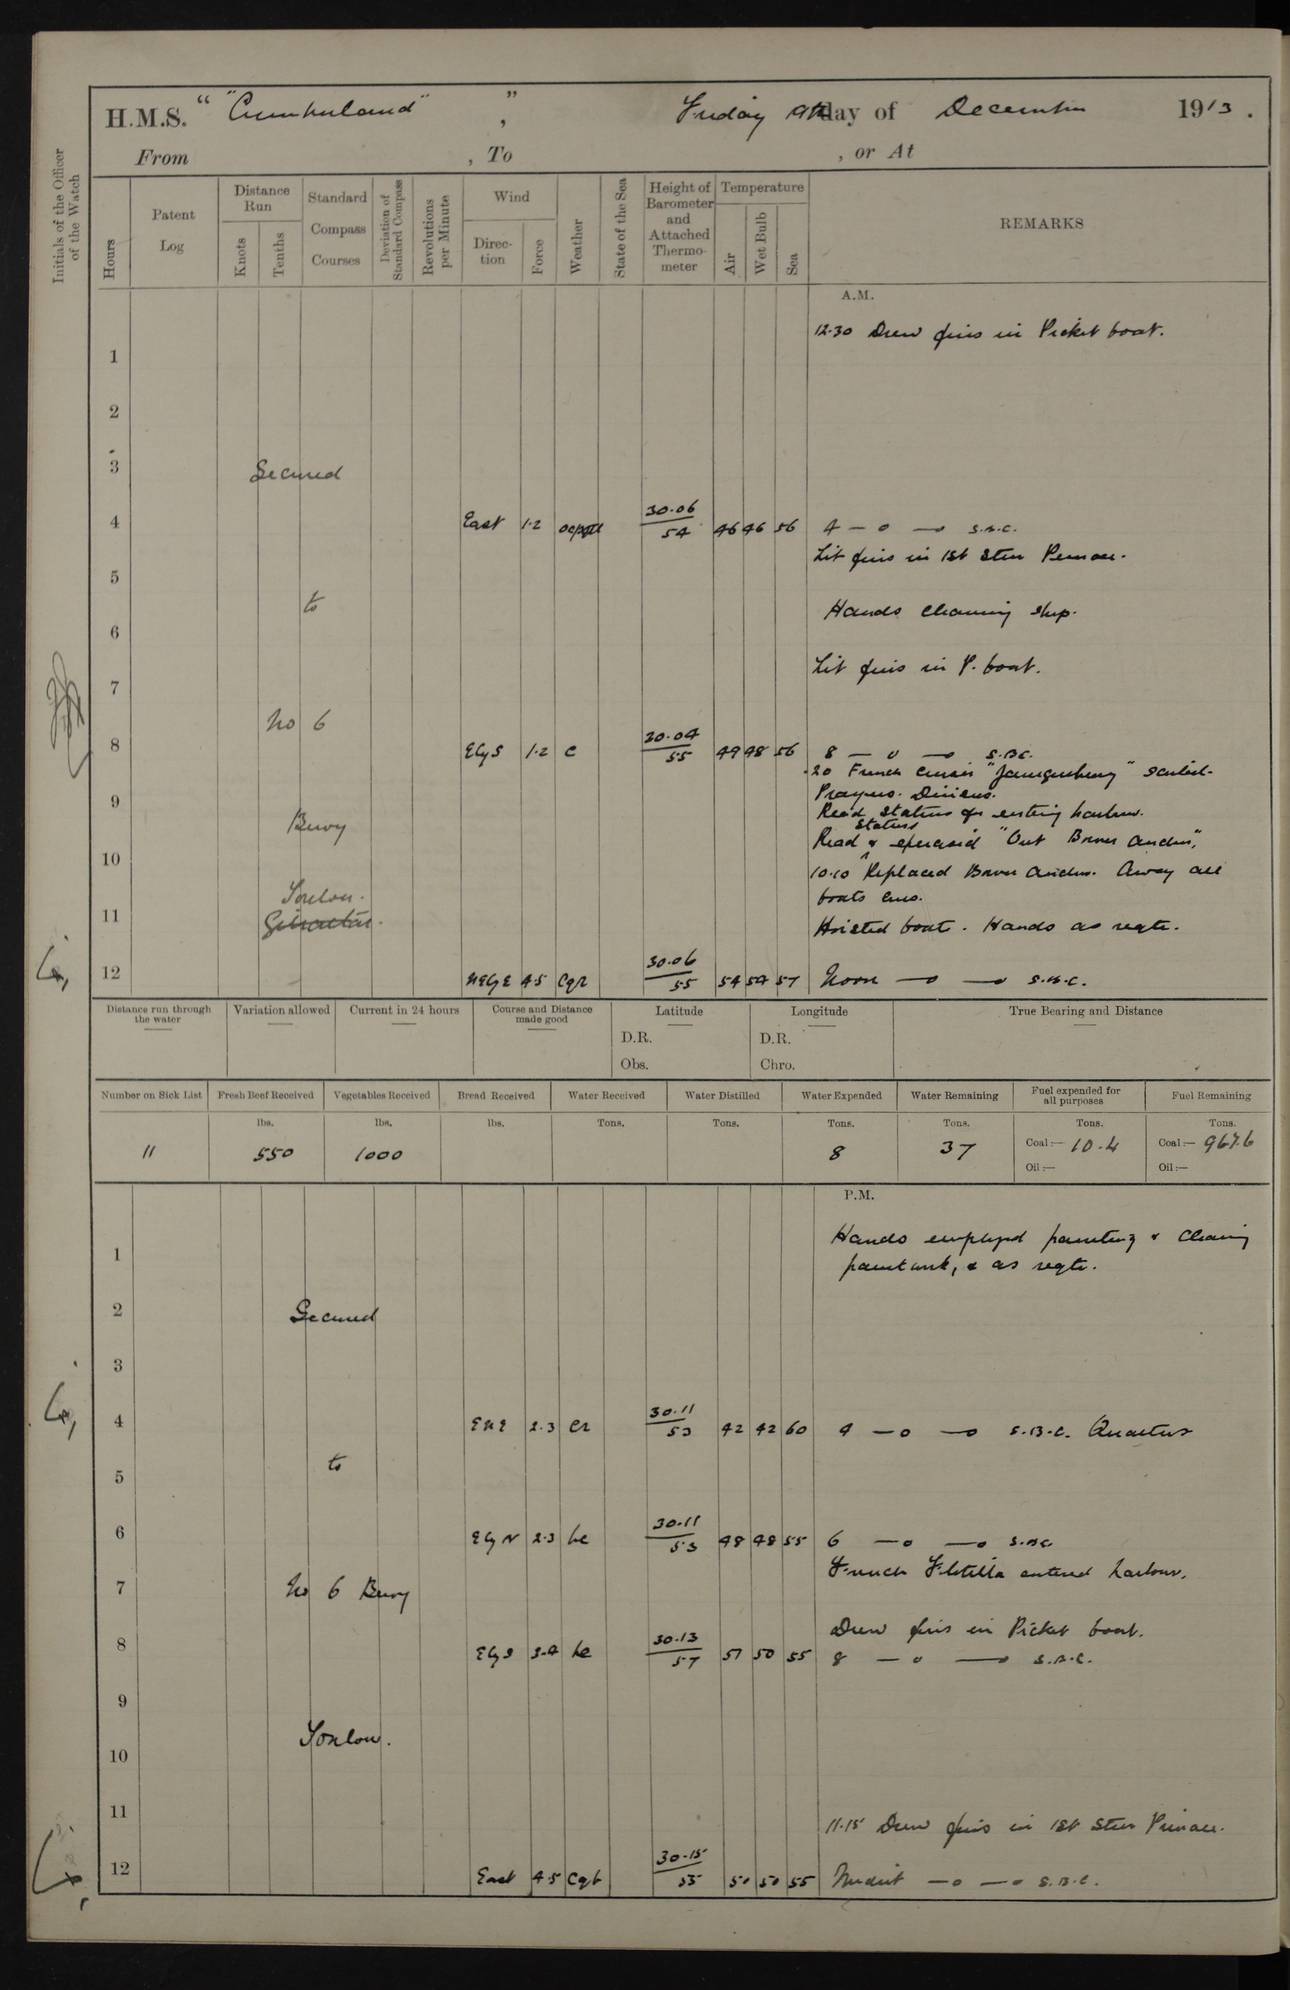 H.M.S. " "Cumberland" ", Friday 19th day of December 1913.
From , To , or At
Initials of the Officer of the Watch
Hours
Patent Log
Distance Run
Knots
Tenths
Standard Compass Courses
Deviation of Standard Compass
Revolutions per Minute
Wind
Direc-tion
Force
Weather
State of the Sea
Height of Barometer and Attached Thermo-meter
Temperature
Air
Wet Bulb
Sea
REMARKS
A.M.
12.30 Drew fires in Picket boat.
1
2
3
Secured
4 East 1.2 30.06 54 46 46 56 4 — o —o S.B.C.
Lit fires in 1st Stm Pinnace.
5
to
Hands cleaning ship.
6
Lit fires in P. boat.
7
No 6
8 EbyS 1.2 c 30.04 55 49 48 56 8 — o —o S.B.C.
.20 French Cruiser " " sailed.
Prayers. Divisions.
9
Read Stations for entering harbour.
Buoy
Stations
Read & exercised "Out Bower anchor",
10
10.10 Replaced Bower anchor. Away all
boats crews.
Toulon.
Gibraltar.
11
Hoisted boats. Hands as reqte.
12 NEbyE 4.5 cqr 30.06 55 54 54 57 Noon —o —o S.B.C.
Distance run through the water
Variation allowed
Current in 24 hours
Course and Distance made good
Latitude
D.R.
Obs.
Longitude
D.R.
Chro.
True Bearing and Distance
Number on Sick List
Fresh Beef Received
Vegetables Received
Bread Received
Water Received
Water Distilled
Water Expended
Water Remaining
Fuel expended for all purposes
Fuel Remaining
lbs. lbs. lbs. Tons. Tons. Tons. Tons. Tons. Tons.
11 550 1000 8 37 Coal:— 10.4 Coal:— 967.6
Oil:— Oil:—
P.M.
Hands employed painting & cleaning
1
paintwork, & as reqte.
2
Secured
3
4 ENE 2.3 cr 30.11 53 42 42 60 4 — o —o S.B.C. Quarters
to
5
6 EbyN 2.3 bc 30.11 53 48 48 55 6 —o —o S.B.C
French Flotilla entered harbour.
7
No 6 Buoy
Drew fires in Picket boat.
8 EbyS 3.4 bc 30.13 57 51 50 55 8 — o —o S.B.C.
9
Toulon.
10
11
11.15 Drew fires in 1st Stm Pinnace.
12 East 4.5 cqt 30.15 55 50 50 55 Midnt —o —o S.B.C.